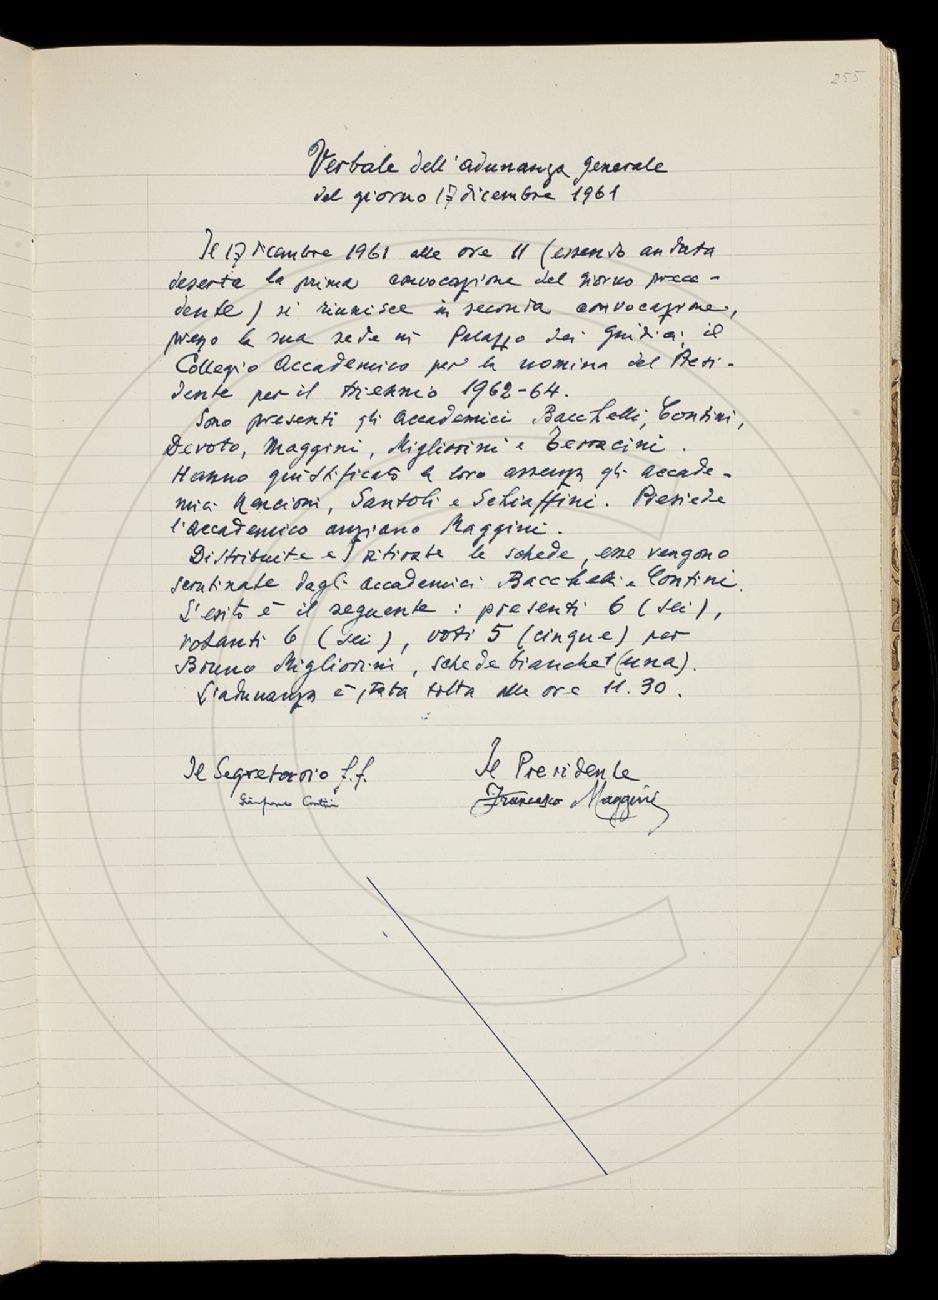 255
Verbale dell'adunanza generale
del giorno 17 dicembre 1961
Il 17 dicembre 1961 alle ore 11 (essendo andata
deserta la prima convocazione del giorno prece-
dente) si riunisce in seconda convocazione,
presso la sua sede in Palazzo dei Giudici, il
Collegio Accademico per la nomina del Presi-
dente per il triennio 1962-64.
Sono presenti gli Accademici Bacchelli, Contini,
Devoto, Maggini, Migliorini e Terracini.
Hanno giustificato la loro assenza gli Accade-
mici Nencioni, Santoli e Schiaffini. Presiede
l'accademico anziano Maggini.
Distribuite e ritirate le schede, esse vengono
scrutinate dagli Accademici Bacchelli e Contini.
L'esito è il seguente: presenti 6 (sei),
votanti 6 (sei), voti 5 (cinque) per
Bruno Migliorini, schede bianche 1 (una).
L'adunanza è stata tolta alle ore 11.30.
Il Segretario f.f. Il Presidente
Gianfranco Contini Francesco Maggini